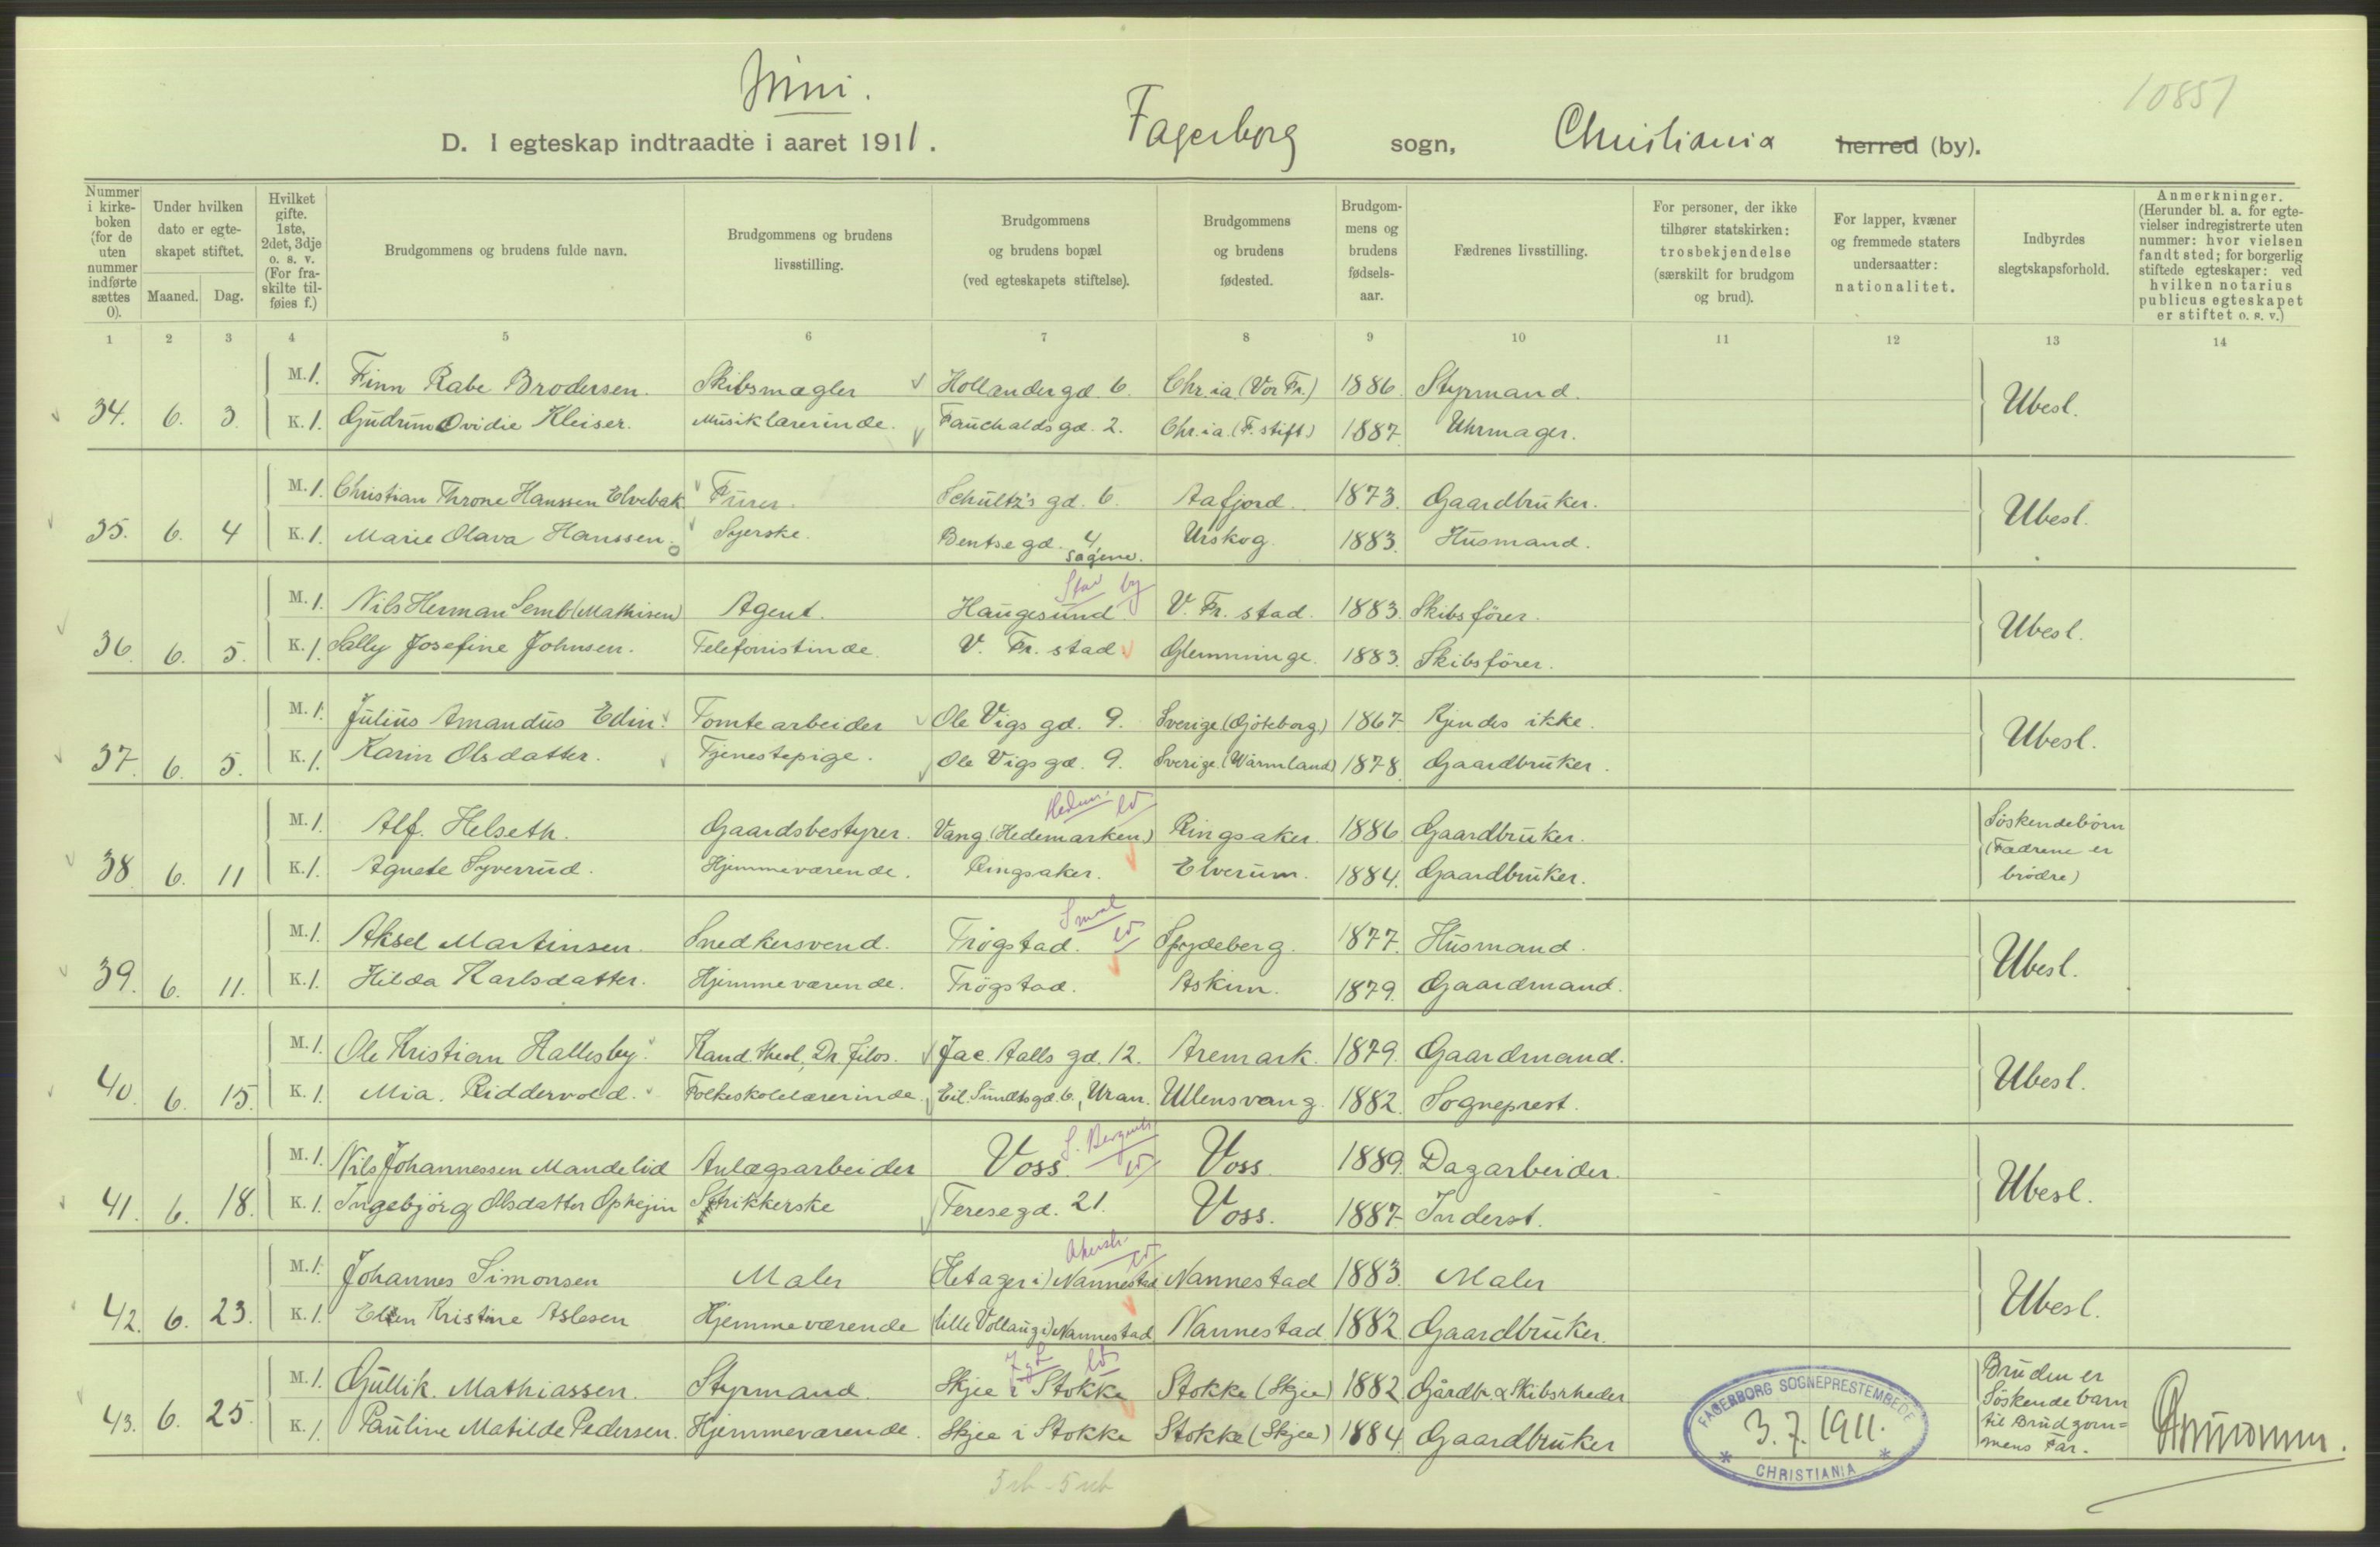 Juni.
10851
D. I egteskap indtraadte i aaret 1911. Fagerborg sogn, Christiania herred (by).
Nummer i kirkeboken (for de uten nummer indførte sættes 0).
Under hvilken dato er egteskapet stiftet.
Maaned. Dag.
Hvilket gifte. 1ste, 2det, 3dje o. s. v. (For fraskilte tilføies f.)
Brudgommens og brudens fulde navn.
Brudgommens og brudens livsstilling.
Brudgommens og brudens bopæl (ved egteskapets stiftelse).
Brudgommens og brudens fødested.
Brudgommens og brudens fødselsaar.
Fædrenes livsstilling.
For personer, der ikke tilhører statskirken: trosbekjendelse (særskilt for brudgom og brud).
For lapper, kvæner og fremmede staters undersaatter: nationalitet.
Indbyrdes slegtskapsforhold.
Anmerkninger. (Herunder bl. a. for egtevielser indregistrerte uten nummer: hvor vielsen fandt sted; for borgerlig stiftede egteskaper: ved hvilken notarius publicus egteskapet er stiftet o. s. v.)
1 2 3 4 5 6 7 8 9 10 11 12 13 14
M. 1. Finn Rabe Brodersen. Skibsmægler Hollændergd. 6. Chr.ia (Vor Fr.) 1886. Styrmand.
34. 6. 3. K. 1. Gudrun Ovidie Kleiser. Musiklærerinde. Fauchaldsgd. 2. Chr.ia. (F. stift) 1887. Uhrmager. Ubesl.
M. 1. Christian Throne Hanssen Elvebak Furer. Schultz's gd. 6. Aafjord. 1873. Gaardbruker.
35. 6. 4 K. 1. Marie Olava Hanssen. Syerske. Bentsegd. 4, Sagene. Urskog. 1883. Husmand. Ubesl.
Stav by
M. 1. Nils Herman Semb (Mathisen) Agent. Haugesund V. Fr. stad. 1883. Skibsfører.
36. 6. 5. K. 1. Sally Josefine Johnsen. Telefonistinde. V. Fr. stad Glemminge. 1883. Skibsfører. Ubesl.
M. 1. Julius Amandus Edin. Tomtearbeider Ole Vigs gd. 9. Sverige (Gjøteborg) 1867. Kjendes ikke.
37. 6. 5. K. 1. Karin Olsdatter. Tjenestepige. Ole Vigs gd. 9. Sverige (Wärmland) 1878. Gaardbruker. Ubesl.
Hedm. ld
M. 1. Alf. Helseth. Gaardsbestyrer. Vang (Hedemarken) Ringsaker. 1886. Gaardbruker. Søskendebørn
38 6. 11 K. 1. Agnete Syverud. Hjemmeværende. Ringsaker. Elverum. 1884. Gaardbruker. (Fædrene er brødre)
Smaal ld
M. 1. Aksel Martinsen. Snedkersvend. Trøgstad. Spydeberg. 1877. Husmand.
39. 6. 11. K. 1. Hilda Karlsdatter. Hjemmeværende. Trøgstad. Askim. 1879. Gaardmand. Ubesl.
M. 1. Ole Kristian Hallesby. Kand. theol, Dr. filos. Jac. Aalls gd. 12. Aremark. 1879. Gaardmand.
40. 6. 15. K. 1. Mia. Riddervold. Folkeskolelærerinde. Eil. Sundtsgd. 6, Uran. Ullensvang. 1882. Sogneprest. Ubesl.
S. Bergenh. ld
M. 1. Nils Johannessen Mandelid Anlægsarbeider Voss. Voss 1889. Dagarbeider.
41. 6. 18. K. 1. Ingebjørg Olsdatter Ophejm Strikkerske Teresegd. 21. Voss. 1887. Inderst. Ubesl.
Akersh. ld
M. 1. Johannes Simonsen Maler (Hetager i) Nannestad Nannestad 1883. Maler
42. 6. 23. K. 1. Ellen Kristine Aslesen Hjemmeværende (lille Vollaug i) Nannestad Nannestad 1882. Gaardbruker. Ubesl.
ld
M. 1. Gullik. Mathiassen. Styrmand. Skjee i Stokke Stokke (Skjee) 1882 Gårdbr. & Skibsrheder Bruden er Søskendebarn
43. 6. 25. K. 1. Pauline Matilde Pedersen. Hjemmeværende. Skjee i Stokke Stokke (Skjee) 1884. Gaardbruker til Brudgommens Far.
FAGERBORG SOGNEPRESTEMBEDE
3.7.1911.
* CHRISTIANIA *